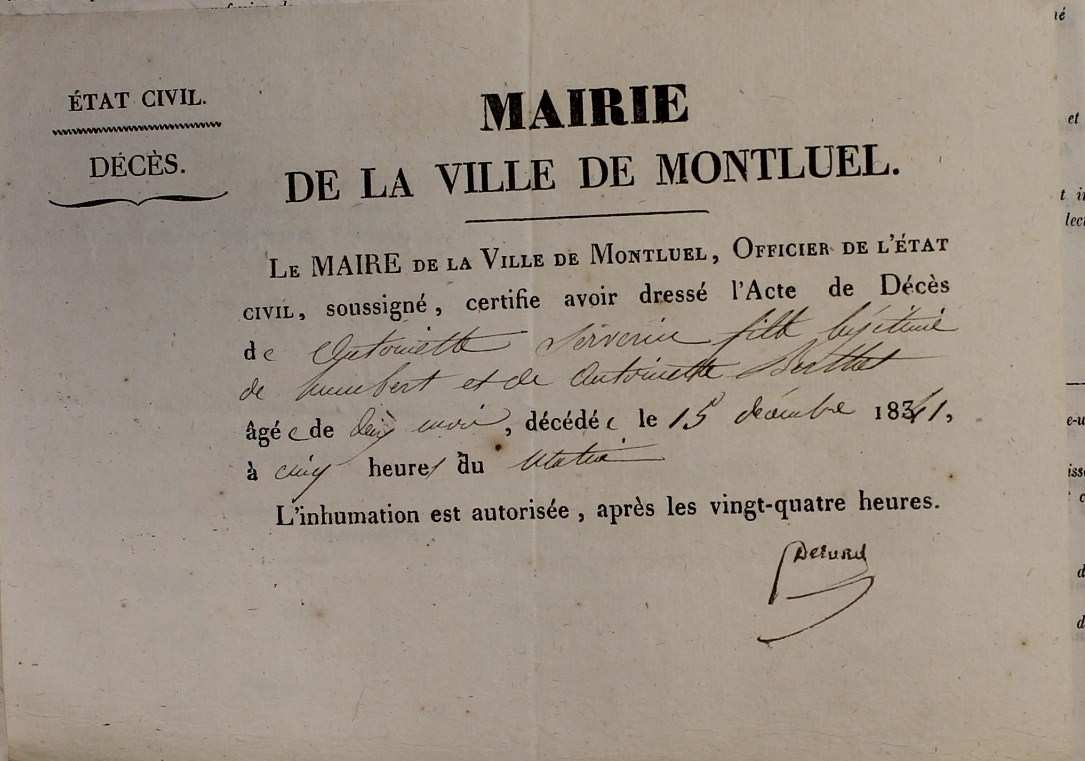 ÉTAT CIVIL.
DÉCÈS.
MAIRIE
DE LA VILLE DE MONTLUEL.
LE MAIRE DE LA VILLE DE MONTLUEL, OFFICIER DE L'ÉTAT
CIVIL, soussigné, certifie avoir dressé l'Acte de Décès
de Antoinette Serverin fille légitime
de humbert et de Antoinette Berthet
âgée de dix mois, décédée le 15 décembre 1841,
à cinq heures du matin
L'inhumation est autorisée, après les vingt-quatre heures.
et
d
d